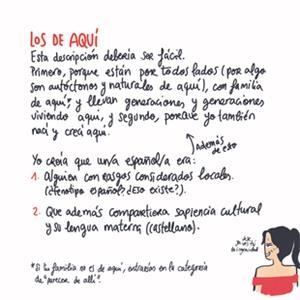 LOS DE AQUÍ
Esta descripción debería ser fácil.
Primero, porque están por todos lados (por algo
son autóctonos y naturales de aquí), con familia
de aquí* y llevan generaciones y generaciones
viviendo aquí, y segundo, porque yo también
nací y crecí aquí.
además
de eso
Yo creía que un/a español/a era:
1. Alguien con rasgos considerados locales.
(¿Fenotipo español? ¿Eso existe?).
2. Que además compartiera sapiencia cultural
y su lengua materna (castellano).
*Si tu familia no es de aquí, entrarías en la categoría
de "parecen de allí".